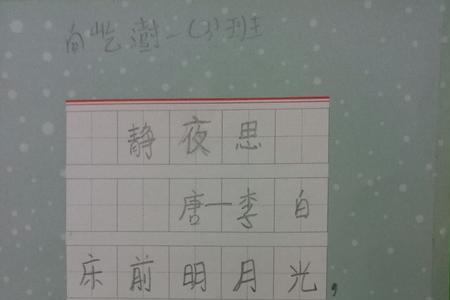 向屹澍一(3)班
静夜思
唐—李白
床前明月光,